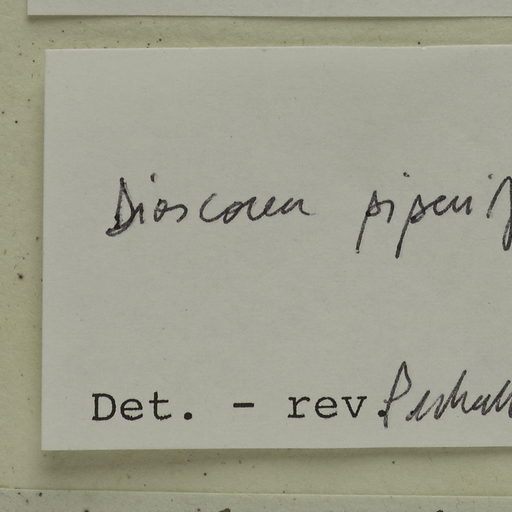 Dioscorea piperif
Det. - rev.